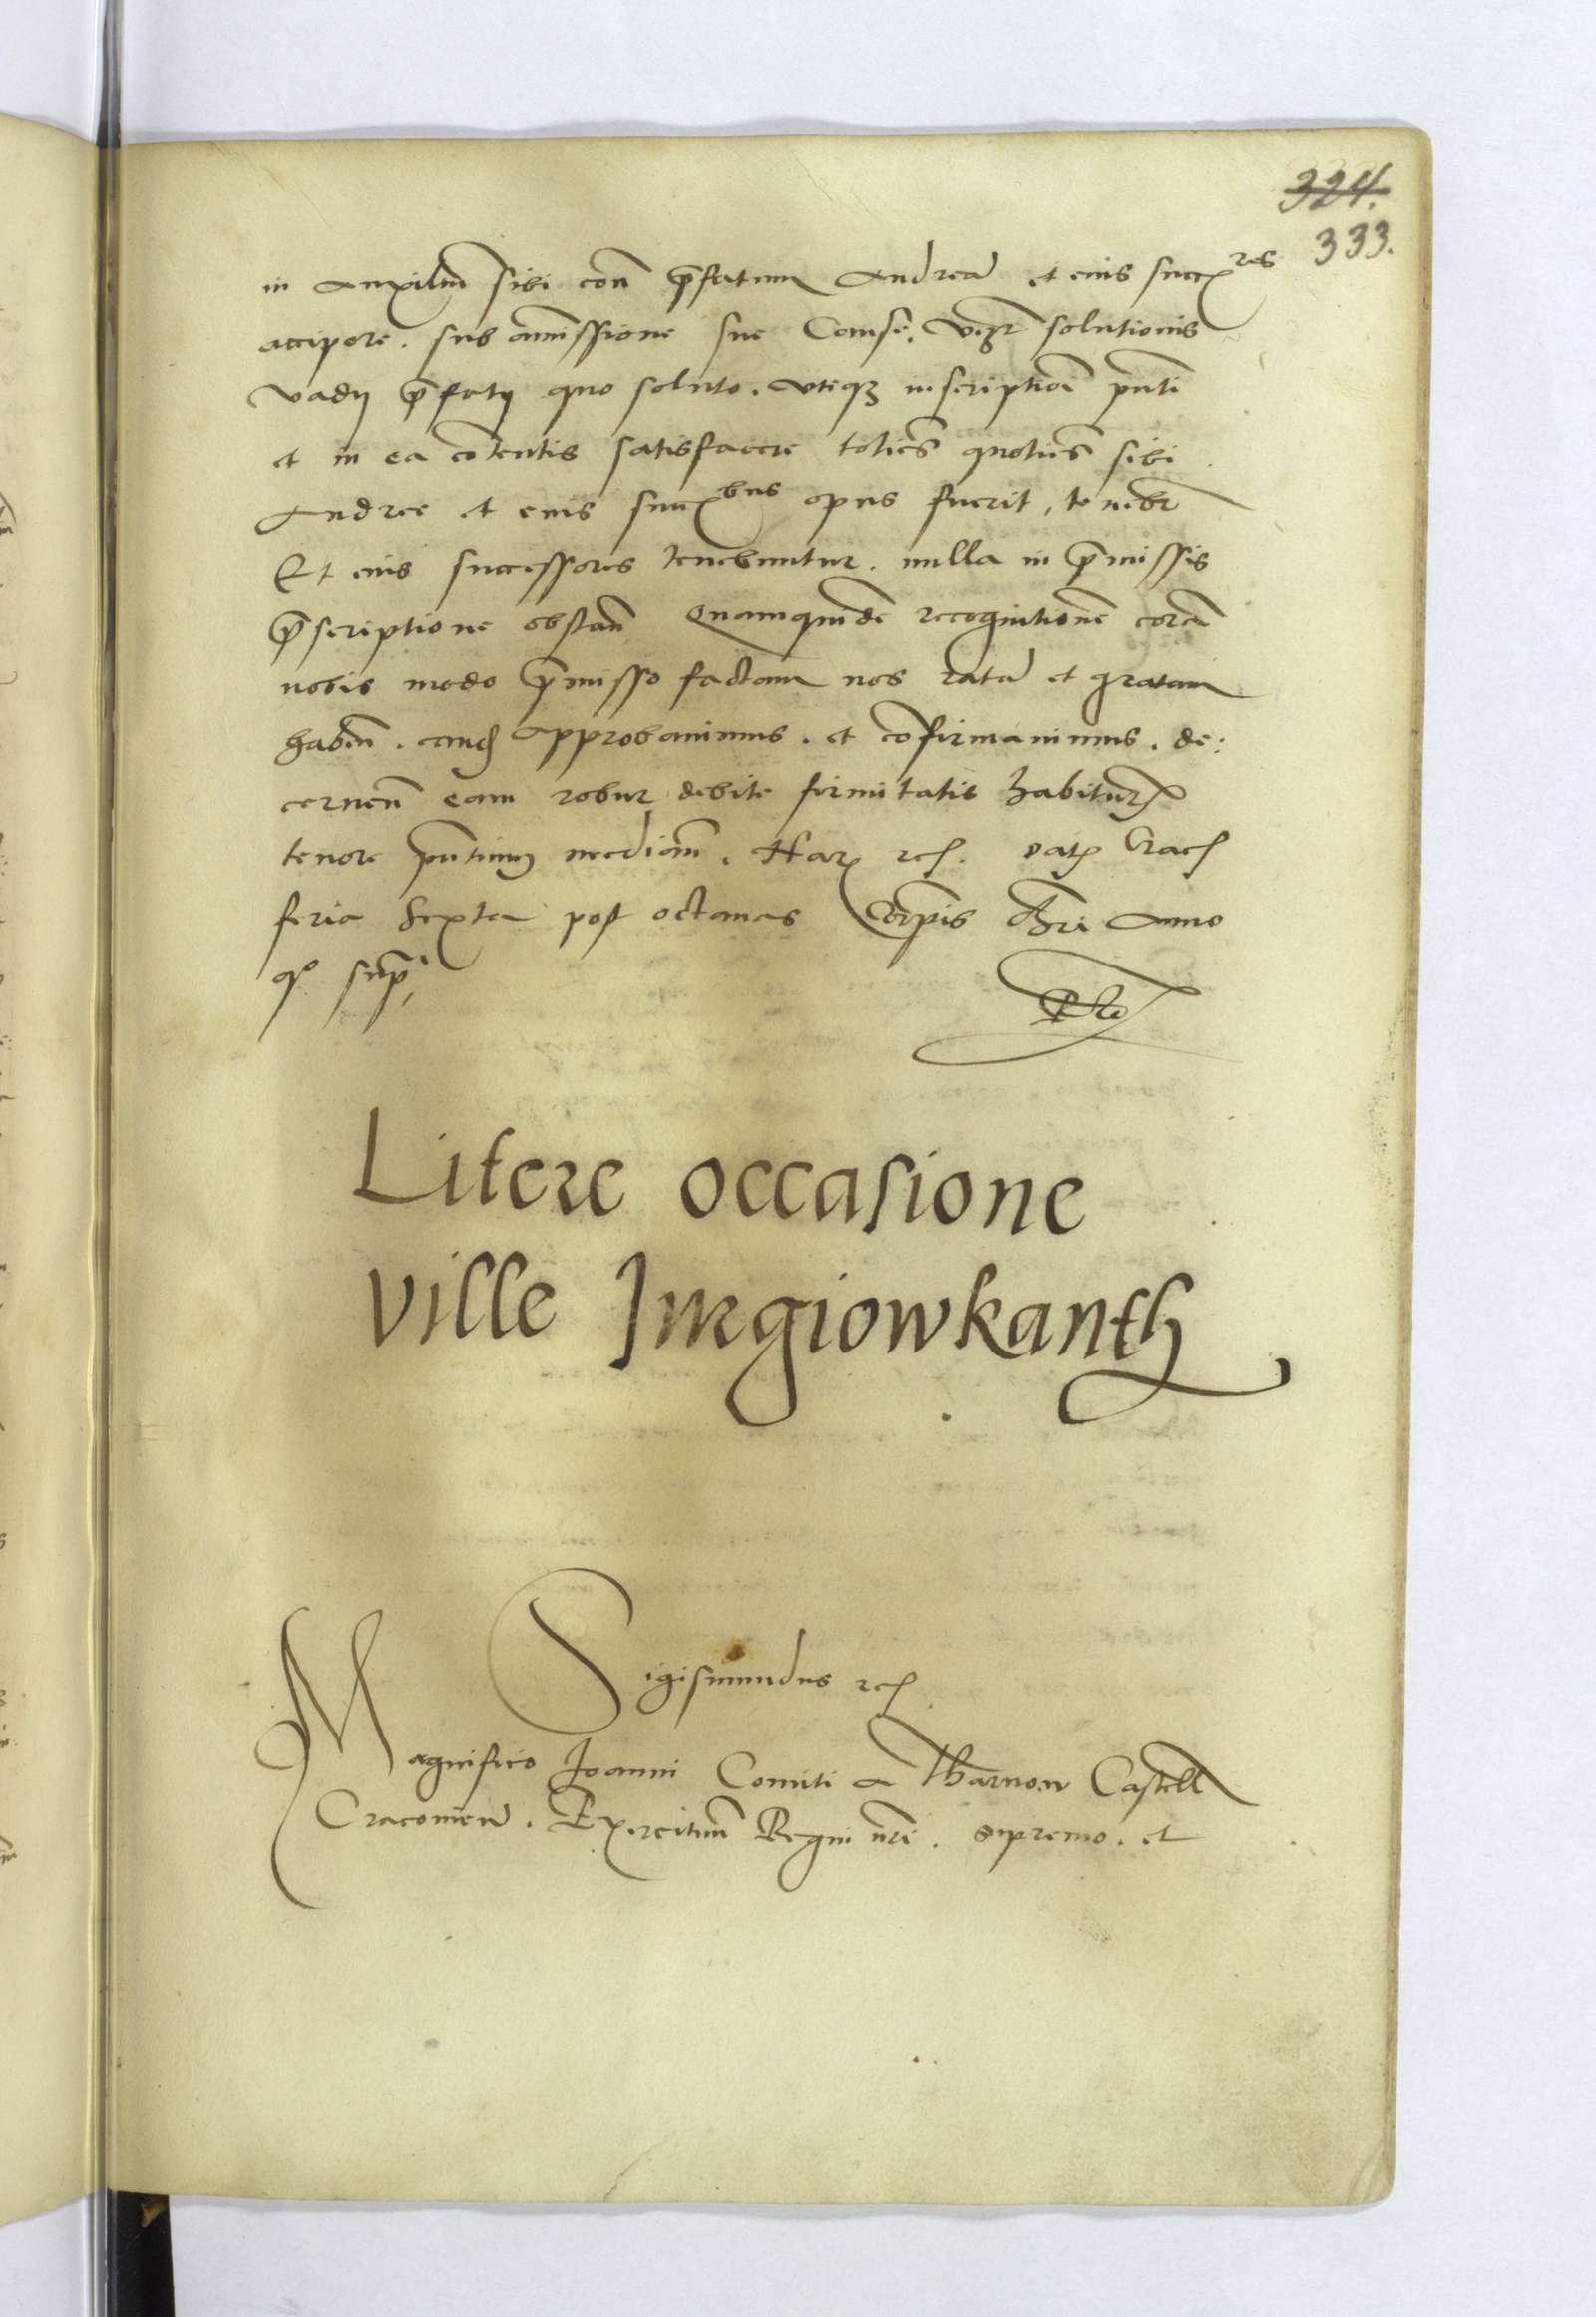 324.
333.
in auxiliũ sibi con̄ p̄fatum Andreā et eius succ̄res
accipere. sub amissione sue Cause. solutionis
vadÿ p̄fatÿ quo soluto. utiqȝ inscriptiōi pn̄ti
et in ea cōtentis satisfacere toties quoties sibi
Andree et eius succ̄bus opus fuerit, tenebr̄
Et eius successores tenebuntur. nulla in p̄missis
p̄scriptione obstan̄ Quamquidē recognitionē corā
nobis modo p̄misso factam nos ratā et gratam
haben̄. eand̄ approbauimus. et cōfirmauimus. de:
cernen̄ eam robur debite firmitatis habitur̄
tenore pn̄tium median̄. Har̄ rc̄. Dat̄ Crac̄
feria Sexta post octauas Corp̄is Chr̄i Anno
qº sup̄ᵃ
Litere occasione
ville Jmgiowkanth
Sigismundus rc̄
Magnifico Joanni Comiti a Tharnow Castell̄
Cracouien̄. Exercituū Regni nr̄i. supremo. et